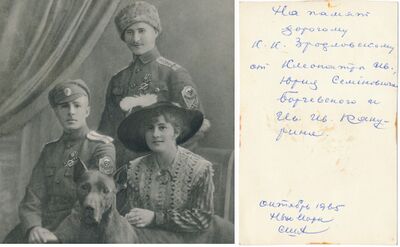 На память
дорогому
К. К. Зродловскому
от Клеопатры Ив.,
Юрия Семёновича
Борчевского и
Ив. Ив.
октябрь 1965
Нью Йорк
США